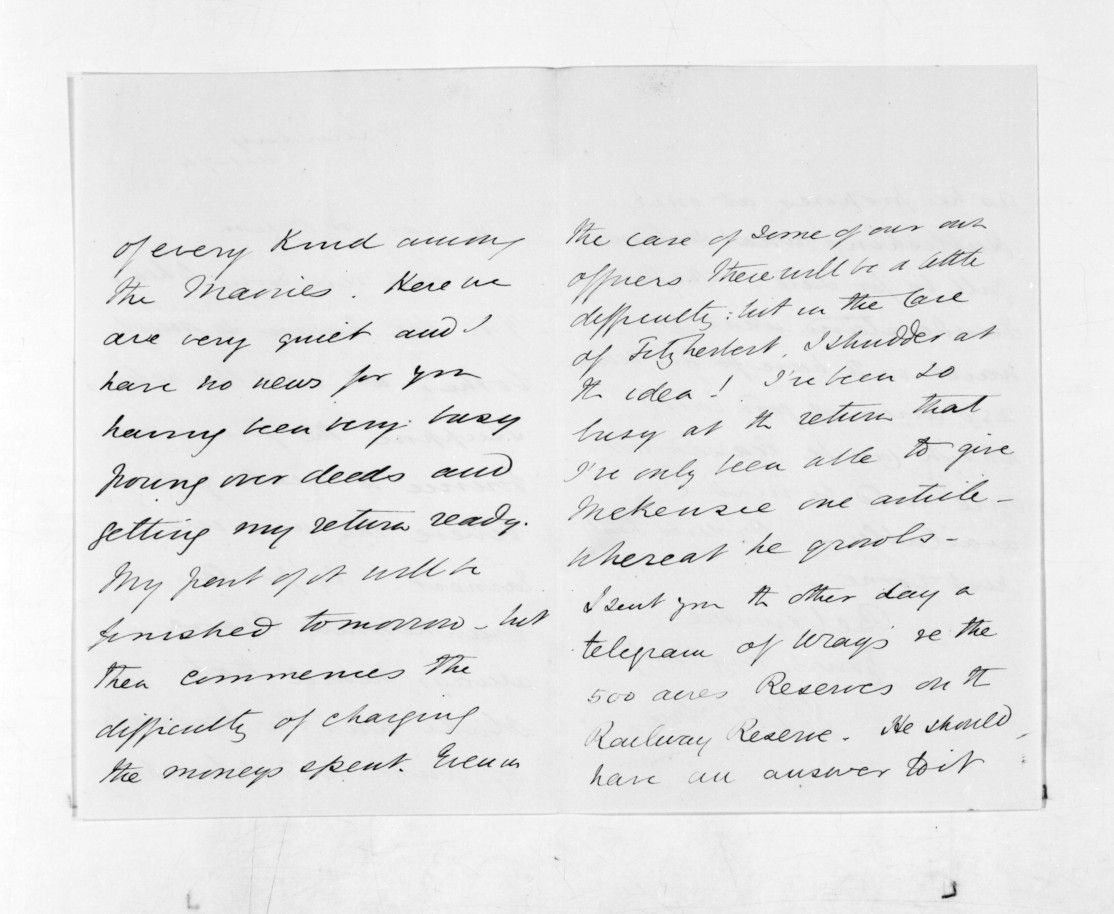 of every kind among
the Maories. Here we
are very quiet and I
have no news for you
having been very busy
poring over deeds and
getting my return ready.
My part of it will be
finished tomorrow - but
then commences the
difficulty of charging
the moneys spent. Even in
the case of some of our own
officers there will be a little
difficulty: but in the case
of Fitzherbert, I shudder at
th idea! I've been so
busy at th return that
I've only been able to give
McKenzie one article -
whereat he growls -
I sent you th other day a
telegram of Wrays re the
500 acres Reserves on th
Railway Reserve. He should
have an answer to it